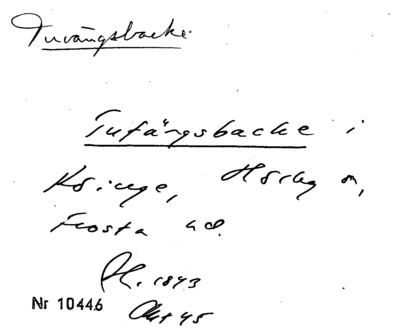 Tuvängsbacke
Tufängsbacke i
Köinge, Hörby sn,
Frosta hd.
1843
Nr 10446
Akt 45